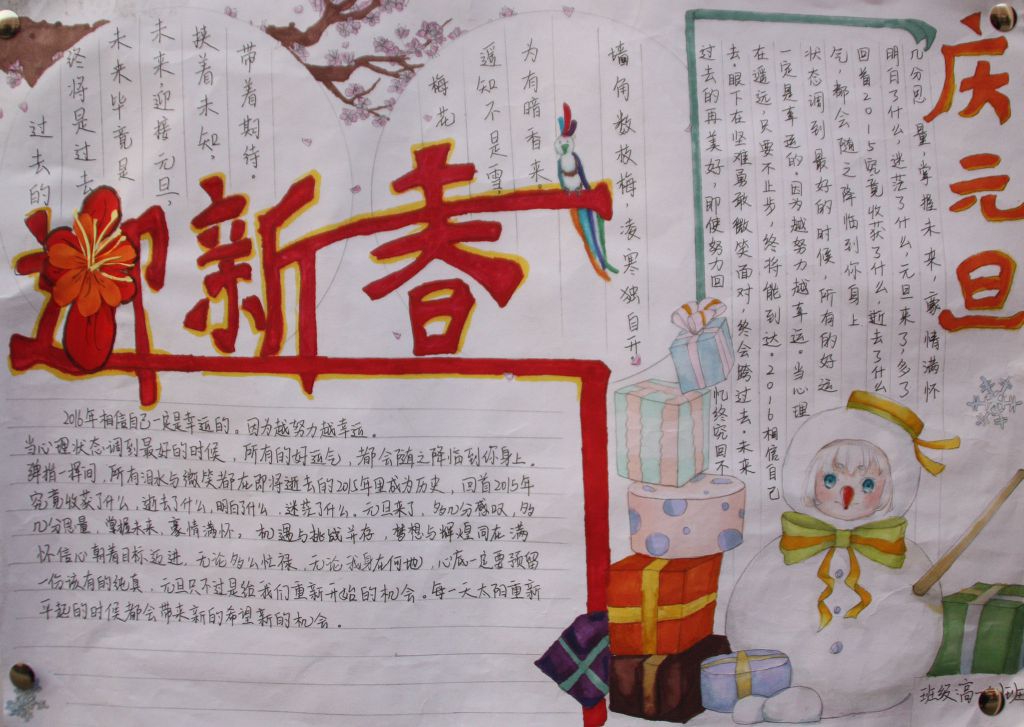 庆元旦
迎新春
墙角数枝梅，凌寒独自开。
为有暗香来。
遥知不是雪，
梅花
带着期待。
挟着未知，
未来，迎接元旦，
未来毕竟是
终将是过去
过去的
几分思量，掌握未来，豪情满怀
明白了什么，迷茫了什么，元旦来了，多了
回首2015究竟收获了什么，逝去了什么
气，都会随之降临到你身上
状态调到最好的时候，所有的好运
一定是幸运的。因为越努力越幸运。当心理
在遥远，只要不止步，终将能到达。2016相信自己
去。眼下在坚难勇敢微笑面对，终会跨过去。未来
过去的再美好，即使努力回忆终究回不
2016年相信自己一定是幸运的。因为越努力越幸运。
当心理状态调到最好的时候，所有的好运气，都会随之降临到你身上。
弹指一挥间，所有泪水与微笑都在即将逝去的2015年里成为历史，回首2015年
究竟收获了什么，逝去了什么，明白了什么，迷茫了什么。元旦来了，多几分感叹，多
几分思量，掌握未来，豪情满怀。机遇与挑战并存，梦想与辉煌同在满
怀信心朝着目标迈进，无论多么忙碌，无论我身在何地，心底一定要预留
一份该有的纯真，元旦只不过是给我们重新开始的机会。每一天太阳重新
升起的时候都会带来新的希望新的机会。
班级高一 班